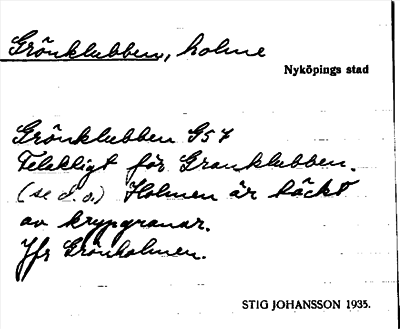 Grönklubben, holme
Nyköpings stad
Grönklubben G57
Felaktigt för Granklubben.
(se d. o.) Holmen är täckt
av krypgranar.
Jfr Grönholmen.
STIG JOHANSSON 1935.